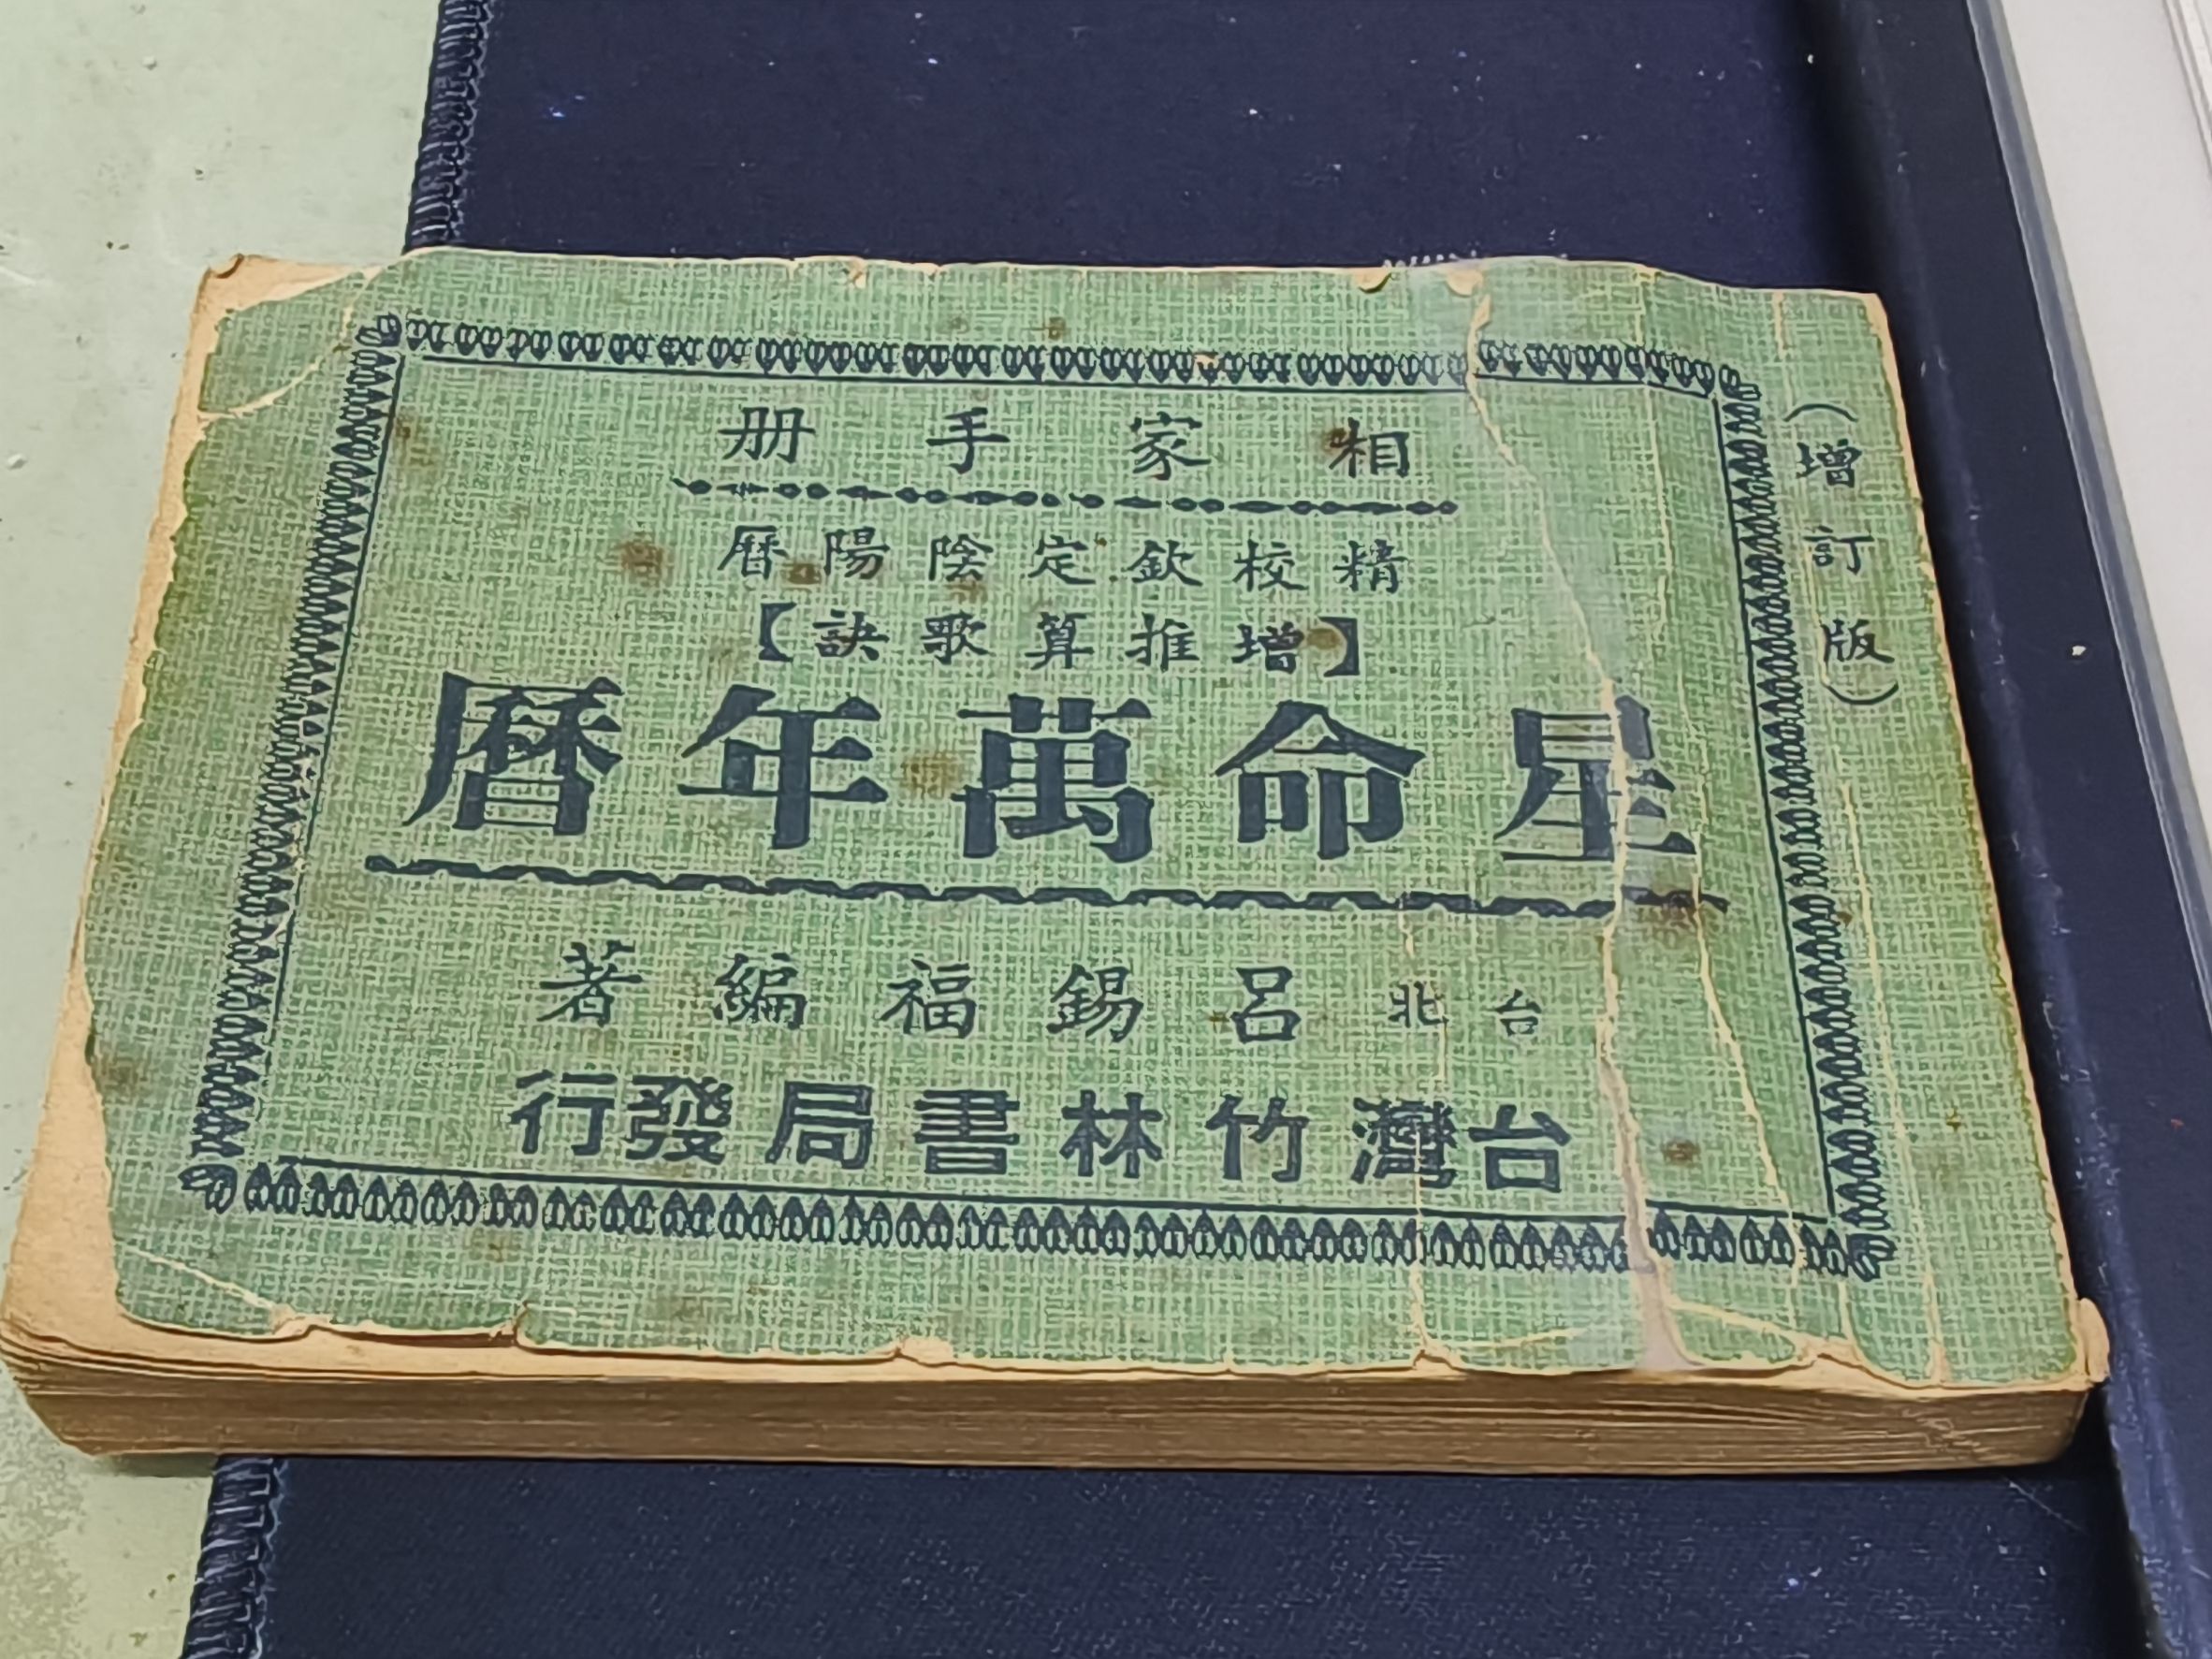 相家手册
精校欽定陰陽曆
【增推算歌訣】
星命萬年曆
台北 呂錫福編著
台灣竹林書局發行
（增訂版）